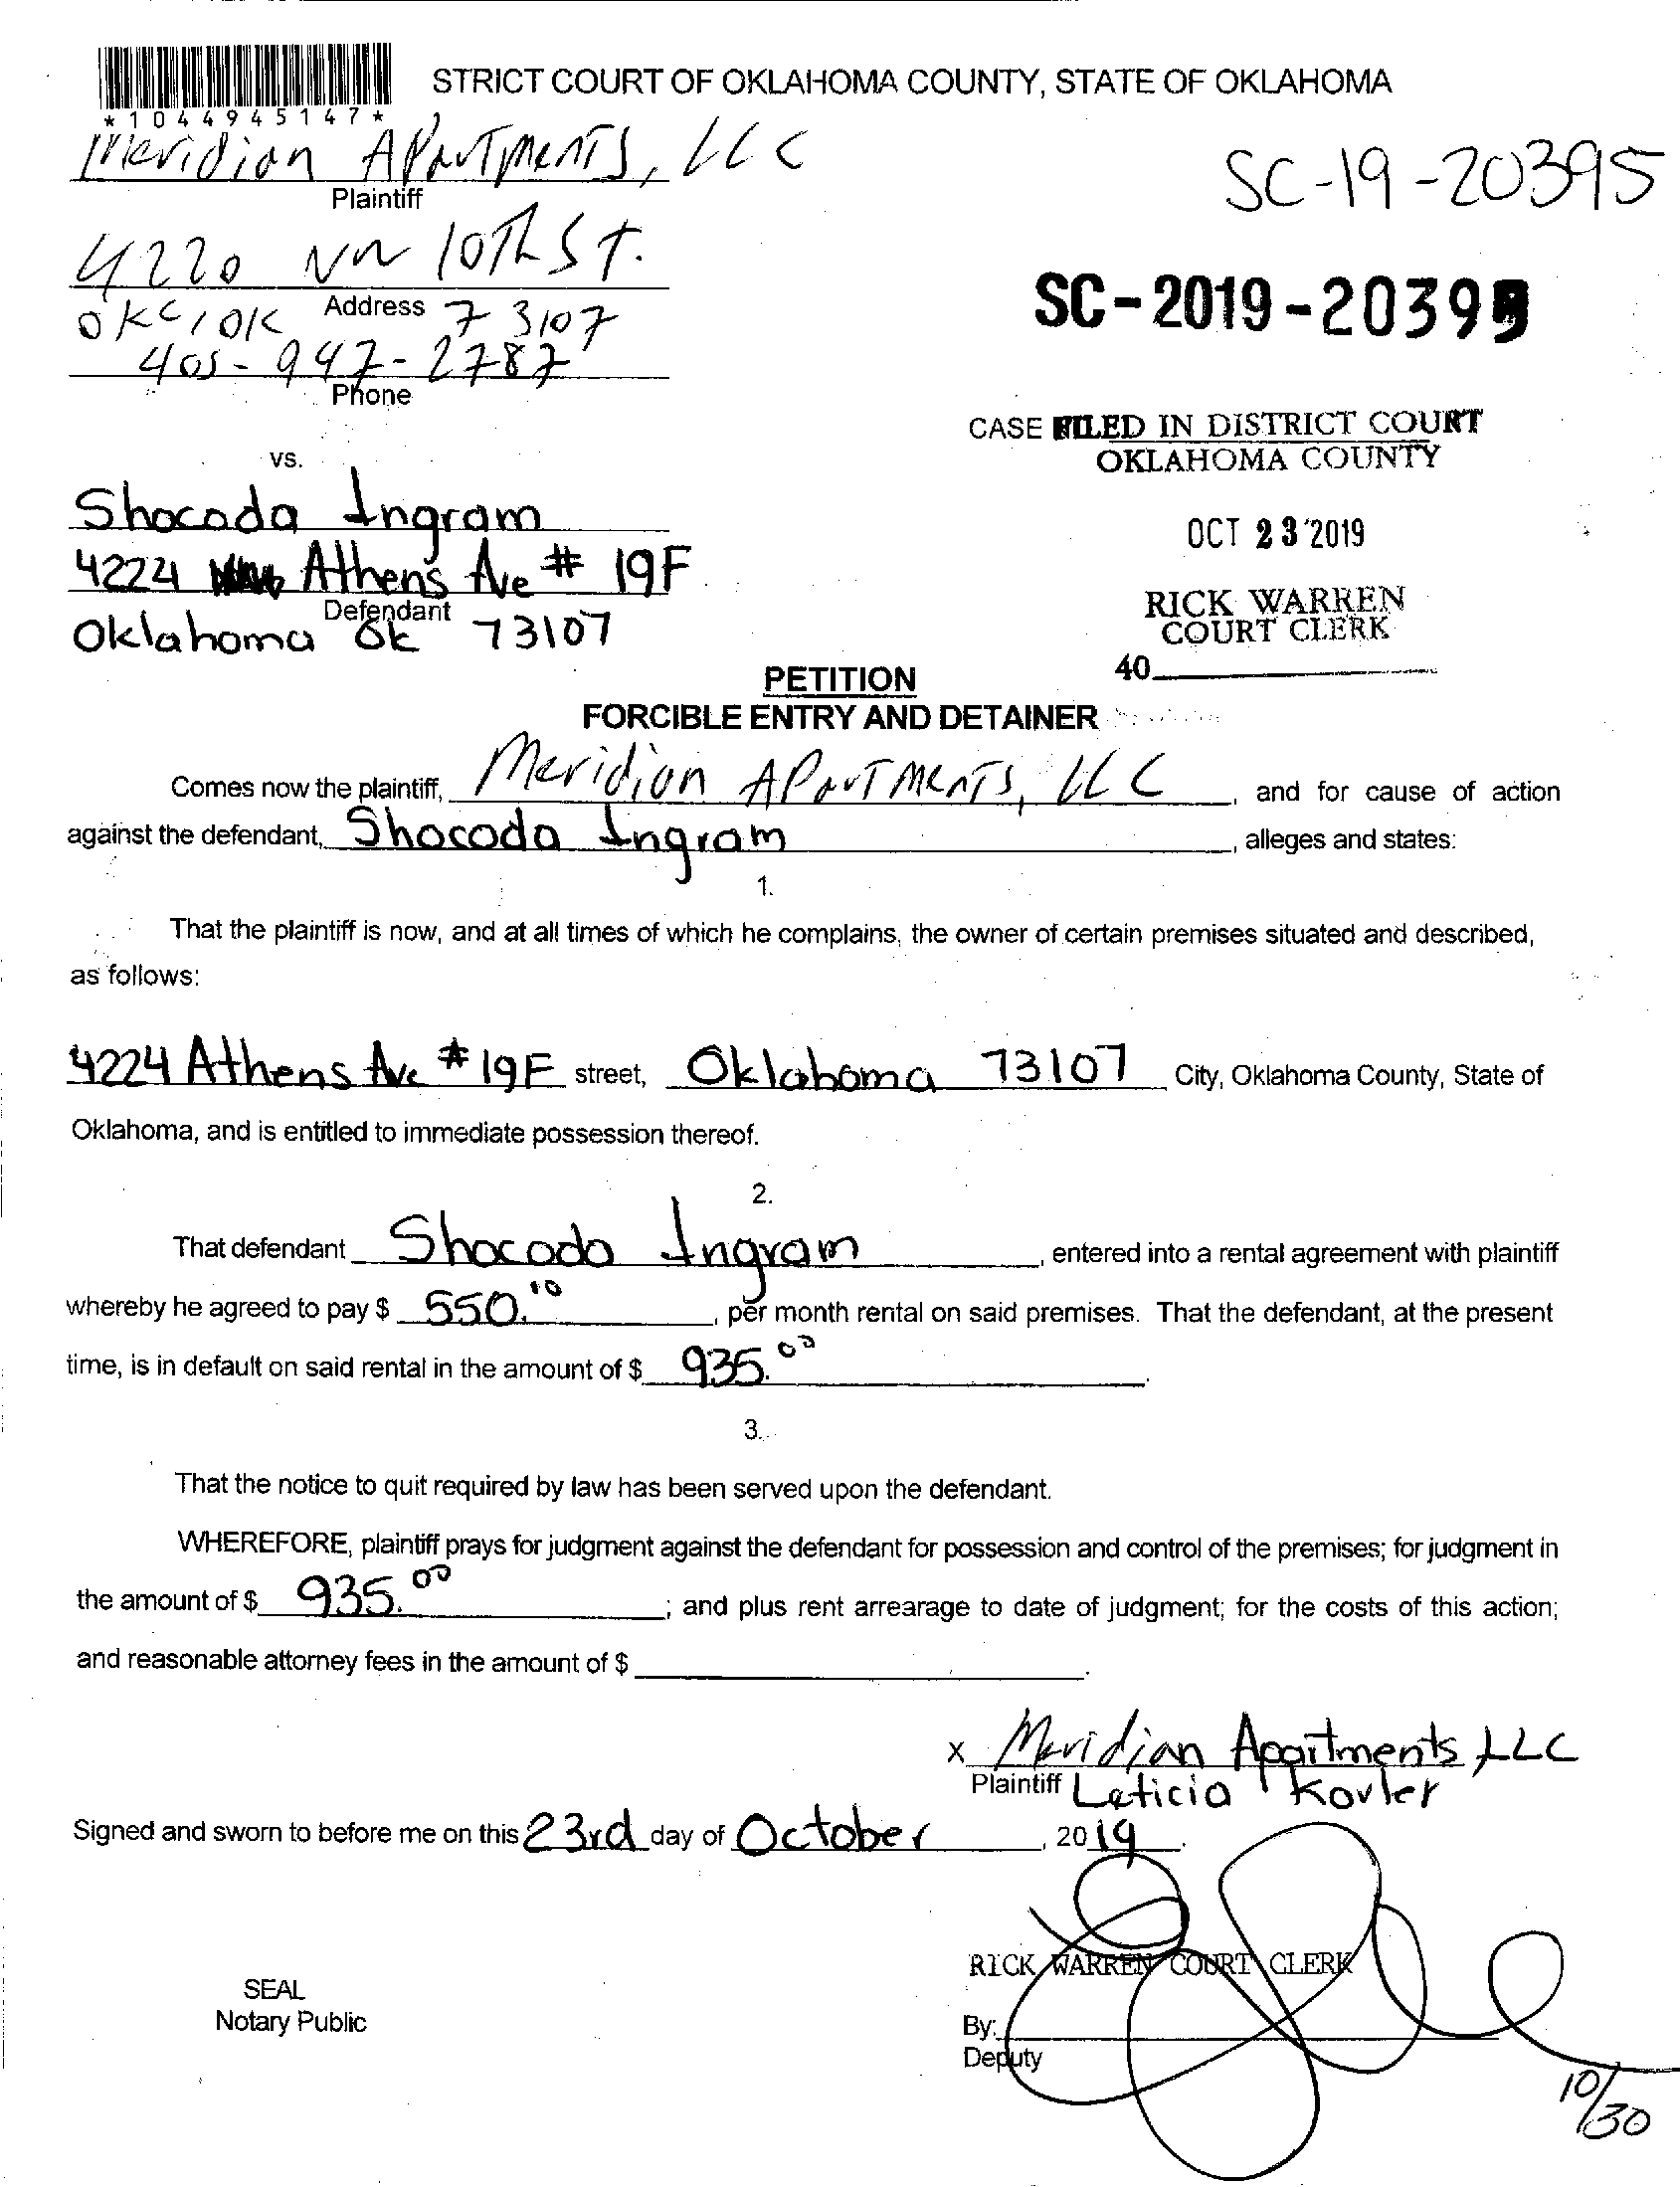 STRICT COURT OF OKLAHOMA COUNTY, STATE OF OKLAHOMA
*1044945147*
Meridian Apartments, LLC
Plaintiff
SC-19-20395
4220 NW 10th St.
Address
OKC, OK 73107
SC-2019-20395
405-947-2787
Phone
CASE FILED IN DISTRICT COURT
OKLAHOMA COUNTY
vs.
Shocoda Ingram
OCT 23 2019
4224 Athens Ave # 19F
Defendant
RICK WARREN
COURT CLERK
Oklahoma Ok 73107
40
PETITION
FORCIBLE ENTRY AND DETAINER
Comes now the plaintiff, Meridian Apartments, LLC, and for cause of action
against the defendant, Shocoda Ingram, alleges and states:
1.
That the plaintiff is now, and at all times of which he complains, the owner of certain premises situated and described,
as follows:
4224 Athens Ave # 19F street, Oklahoma 73107 City, Oklahoma County, State of
Oklahoma, and is entitled to immediate possession thereof.
2.
That defendant Shocoda Ingram, entered into a rental agreement with plaintiff
whereby he agreed to pay $ 550., per month rental on said premises. That the defendant, at the present
time, is in default on said rental in the amount of $ 935.00.
3.
That the notice to quit required by law has been served upon the defendant.
WHEREFORE, plaintiff prays for judgment against the defendant for possession and control of the premises; for judgment in
the amount of $ 935.00; and plus rent arrearage to date of judgment; for the costs of this action;
and reasonable attorney fees in the amount of $ .
x Meridian Apartments LLC
Plaintiff Leticia Kovler
Signed and sworn to before me on this 23rd day of October, 2019.
RICK WARREN COURT CLERK
SEAL
Notary Public
By:
Deputy
10/30